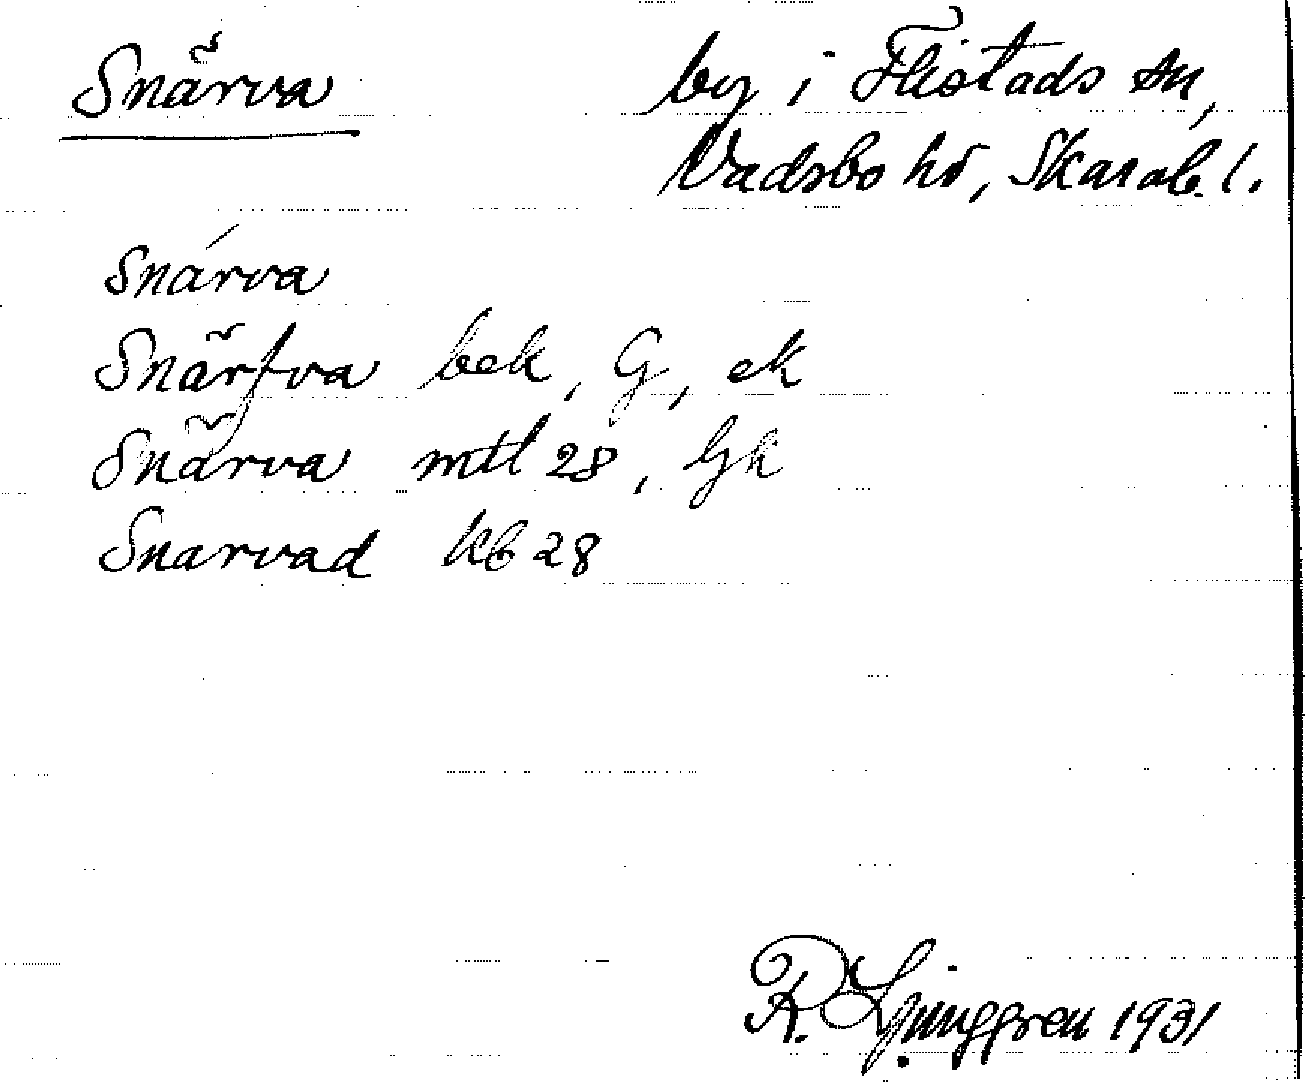 Snärva by i Flistads sn,
Vadsbo hd, Skarab. l.
Snárva
Snärfva bek, G, ek
Snärva mtl 28, Gk
Snarvad kb 28
R. Ljunggren 1931